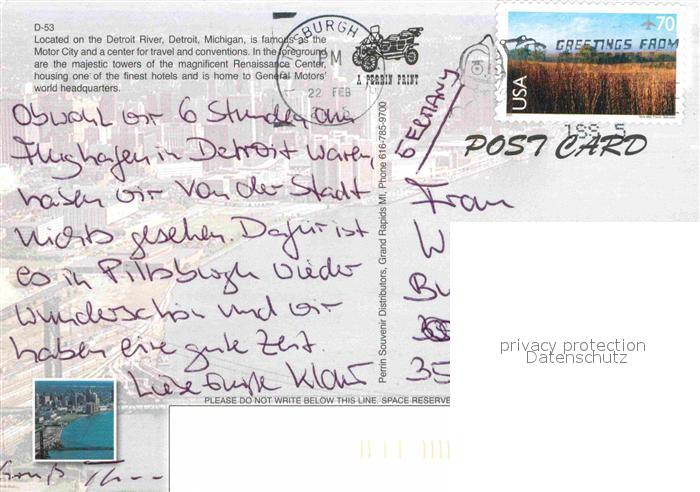 D-53
Located on the Detroit River, Detroit, Michigan, is famous as the
Motor City and a center for travel and conventions. In the foreground
are the majestic towers of the magnificent Renaissance Center,
housing one of the finest hotels and is home to General Motors'
world headquarters.
PITTSBURGH
PM
22 FEB
A PERRIN PRINT
70
GREETINGS FROM
USA
POST CARD
Obwohl wir 6 Stunden am
Flughafen in Detroit waren,
haben wir von der Stadt
nichts gesehen. Dafür ist
es in Pittsburgh wieder
wunderschön und wir
haben eine gute Zeit.
Liebe Grüße Klaus
Perrin Souvenir Distributors, Grand Rapids MI, Phone 616-785-9700
GERMANY
Frau
W
Bu
35
privacy protection
Datenschutz
PLEASE DO NOT WRITE BELOW THIS LINE. SPACE RESERVE